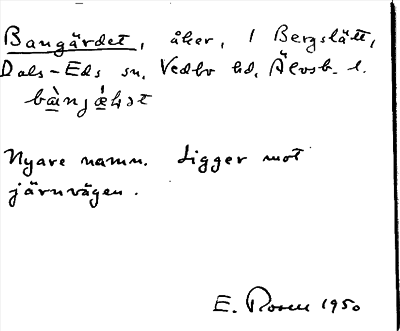 Bangärdet, åker, 1 Bergslätt,
Dals-Eds sn. Vedbo hd. Älvsb. l.
Nyare namn. Ligger mot
järnvägen.
E. Rosen 1950